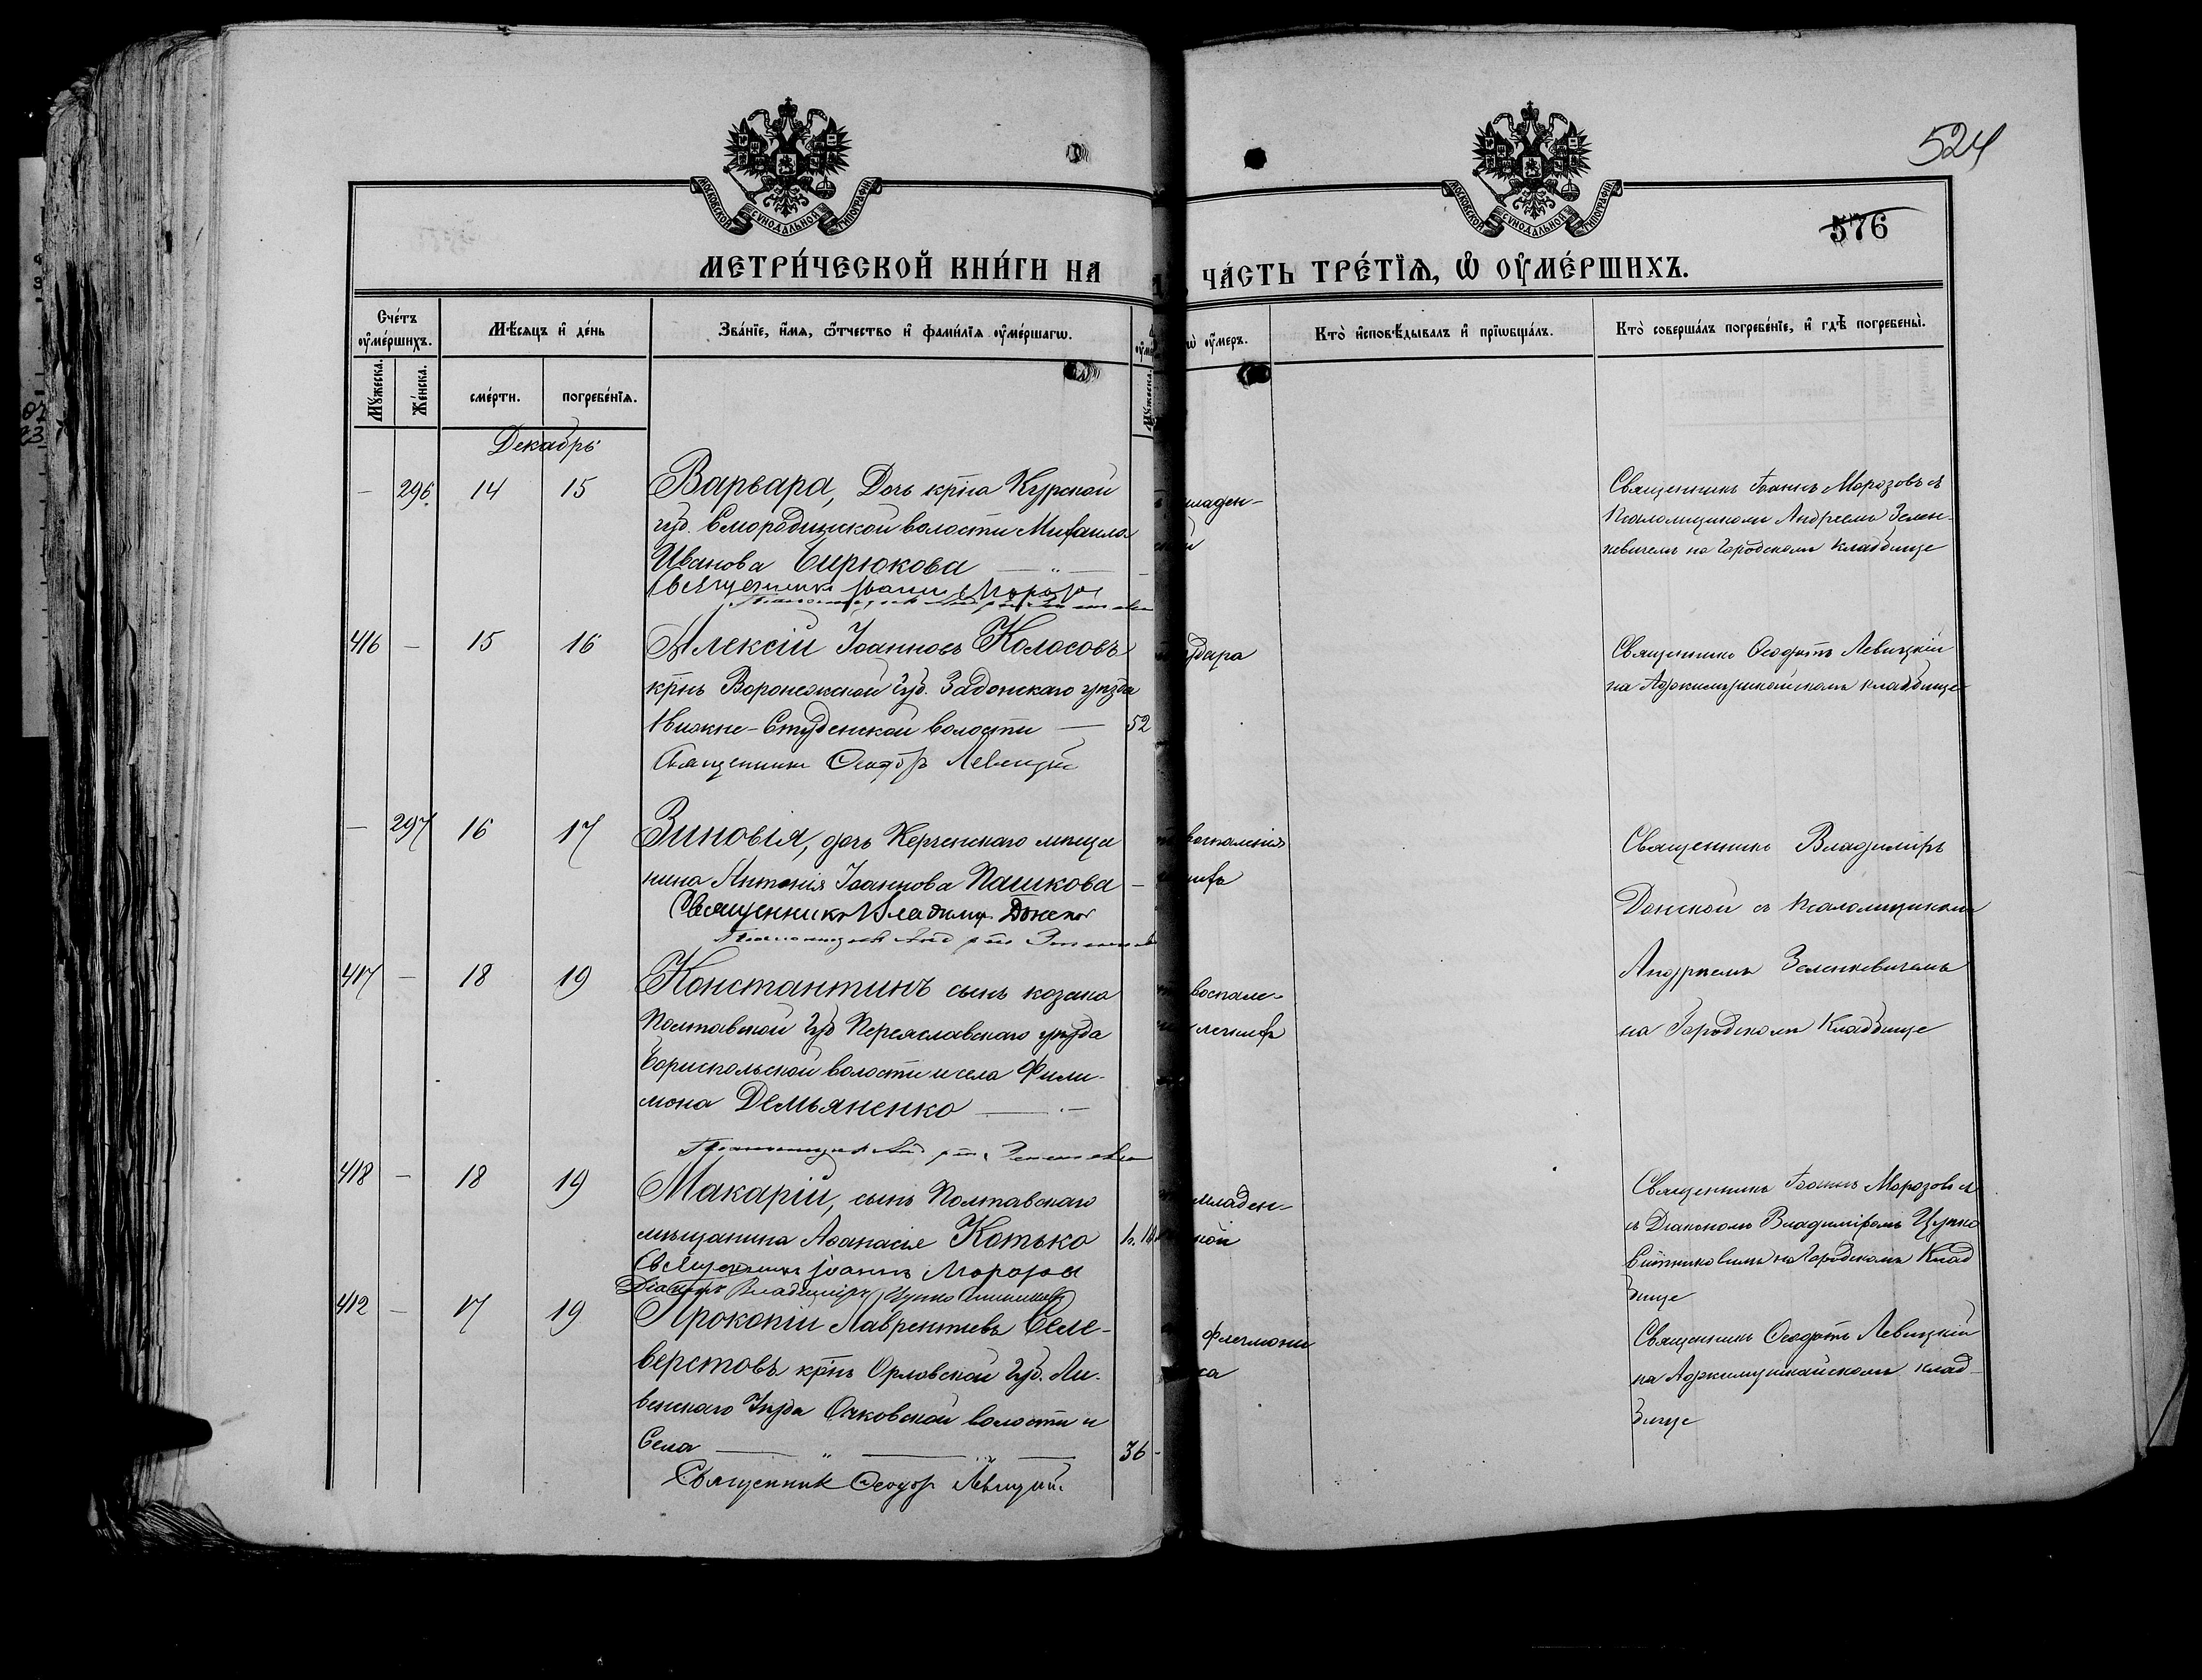 МОСКОВСКОЙ СѴНОДАЛЬНОЙ ТИПОГРАФІИ
МОСКОВСКОЙ СѴНОДАЛЬНОЙ ТИПОГРАФІИ
524
576
МЕТРИ́ЧЕСКОЙ КНИ́ГИ НА
ЧА́СТЬ ТРЕ́ТІѦ, Ѡ҆ ОУ҆МЕ́РШИХЪ.
Сче́тъ оу҆ме́ршихъ.
Мѣ́сяцъ и҆ де́нь
Зва́нїе, и҆́мѧ, ѻ҆́тчество и҆ фами́лїѧ оу҆ме́ршагѡ.
оу҆́меръ.
Кто̀ и҆сповѣ́дывалъ и҆ прїѡбща́лъ.
Кто̀ соверша́лъ погребе́нїе, и҆ гдѣ̀ погребены̀.
Му́жеска.
Же́нска.
сме́рти.
погребе́нїѧ.
Му́жеска.
Декабрь
— 296. 14 15 Варвара, Дочь крна Курской
губ. Смородинской волости Михаила
Иванова Бирюкова — " —
Священникъ Іоаннъ Морозовъ
младен-
Священникъ Іоаннъ Морозовъ съ
Псаломщикомъ Андреемъ Зелен-
кевичемъ на Городскомъ кладбище
416 — 15 16 Алексій Іоанновъ Колосовъ
крнъ Воронежской губ. Задонскаго уѣзда
Нижне-Студенской волости — 52
Священникъ Ѳеодоръ Левицкій
удара
Священникъ Ѳеодотъ Левицкій
на Аджимушкайскомъ кладбище
— 297 16 17 Зиновія, дочь Керченскаго мѣща
нина Антонія Іоаннова Пашкова —
Священникъ Владиміръ Донской
воспаленія
Священникъ Владиміръ
Донской съ Псаломщикомъ
Андреемъ Зеленкевичемъ
на Городскомъ Кладбище
417 — 18 19 Константинъ сынъ козака
Полтавской губ Переяславскаго уѣзда
Бориспольской волости и села Фили-
мона Демьяненко —
воспале-
легкихъ
418 — 18 19 Макарій, сынъ Полтавскаго
мѣщанина Аѳанасія Котько
Священникъ Іоаннъ Морозовъ
Діаконъ Владиміръ Цупко
младен-
кой
Священникъ Іоаннъ Морозовъ съ
съ Діакономъ Владиміромъ Цупко
на Городскомъ Клад
бище
412 — 17 19 Прокопій Лаврентіевъ Селе-
верстовъ крнъ Орловской губ. Ли-
венскаго Уѣзда Очковской волости и
Села — " — " — 36 -
Священникъ Ѳеодоръ Левицкій
флегмоны
Священникъ Ѳеодотъ Левицкій
на Аджимушкайскомъ клад-
бище